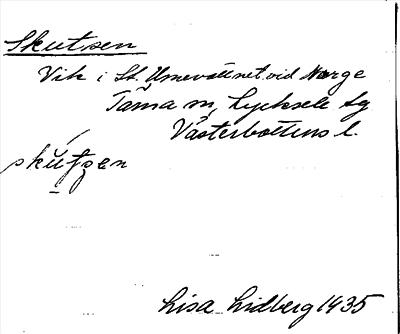 Skutsen
Vik i St. Umevattnet vid Norge
Tärna sn, Lycksele lg
Västerbottens l.
skútsen
Lisa Lidberg 1935